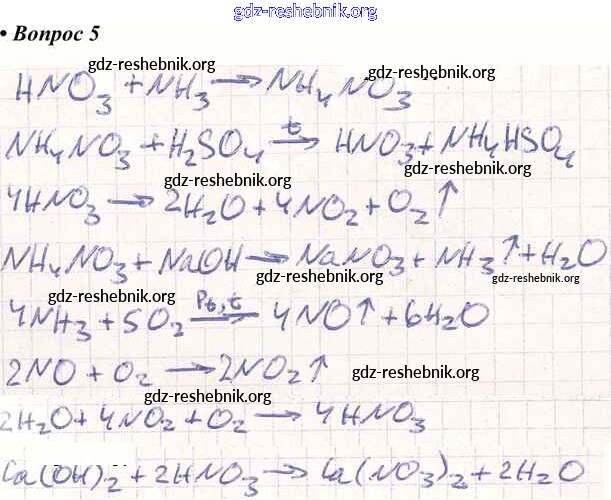 gdz-reshebnik.org
• Вопрос 5
gdz-reshebnik.org
gdz-reshebnik.org
HNO₃ + NH₃ → NH₄NO₃
gdz-reshebnik.org
NH₄NO₃ + H₂SO₄ →(t) HNO₃ + NH₄HSO₄
gdz-reshebnik.org
4HNO₃ → 2H₂O + 4NO₂ + O₂↑
gdz-reshebnik.org
NH₄NO₃ + NaOH → NaNO₃ + NH₃↑ + H₂O
gdz-reshebnik.org
gdz-reshebnik.org
gdz-reshebnik.org
4NH₃ + 5O₂ →(Pt, t) 4NO↑ + 6H₂O
gdz-reshebnik.org
2NO + O₂ → 2NO₂↑
gdz-reshebnik.org
gdz-reshebnik.org
2H₂O + 4NO₂ + O₂ → 4HNO₃
Ca(OH)₂ + 2HNO₃ → Ca(NO₃)₂ + 2H₂O